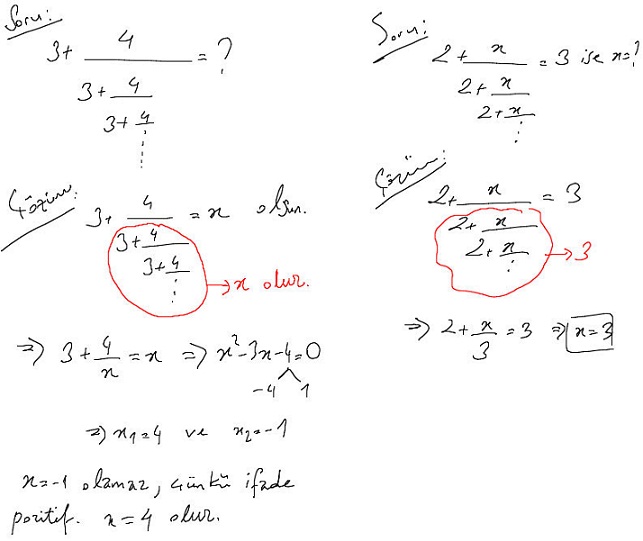 Soru:
3+ 4
3+ 4
3+ 4
⋮
= ?
Çözüm:
3+ 4 = x olsun.
3+ 4
3+ 4
⋮
→ x olur.
⇒ 3 + 4/x = x ⇒ x²-3x-4=0
-4 1
⇒ x₁=4 ve x₂=-1
x=-1 olamaz, çünkü ifade
pozitif. x=4 olur.
Soru:
2+ x = 3 ise x=?
2+ x
2+ x
⋮
Çözüm:
2+ x = 3
2+ x
2+ x
⋮
→ 3
⇒ 2+ x/3 = 3 ⇒ x=3